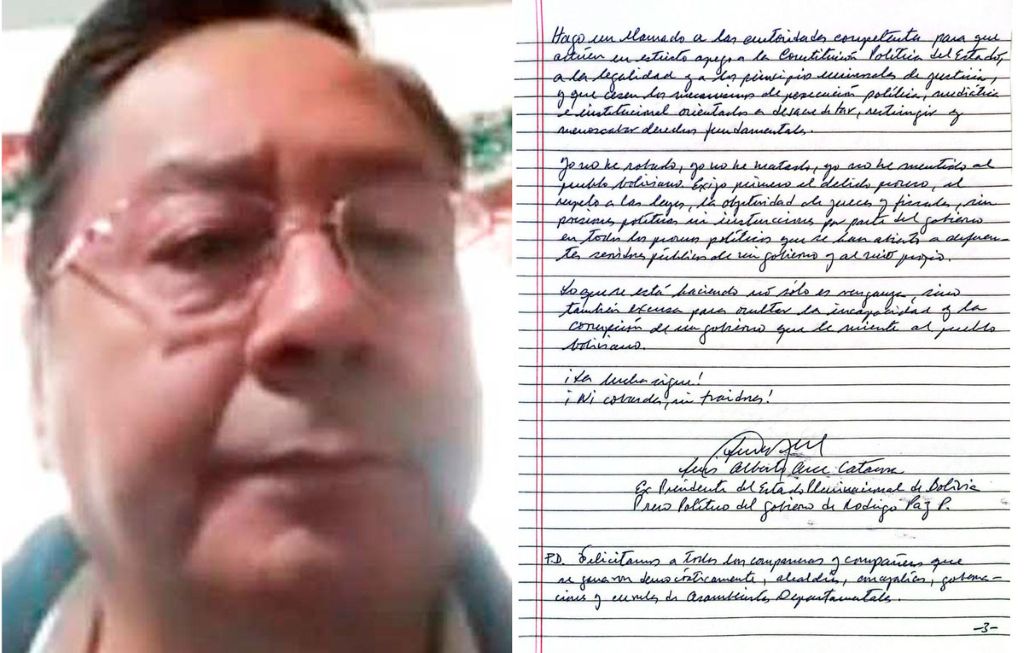 Hago un llamado a las autoridades competentes para que
actúen en estricto apego a la Constitución Política del Estado,
a la legalidad y a los principio universales de justicia,
y que cesen los mecanismos de persecución política, mediática
e institucional orientados a desacreditar, restringir y
menoscabar derechos fundamentales.
Yo no he robado, yo no he matado, yo no he mentido al
pueblo boliviano. Exijo primero el debido proceso, el
respeto a las leyes, la objetividad de jueces y fiscales, sin
presiones políticas ni instrucciones por parte del gobierno
en todos los procesos políticos que se han abierto a diferen-
tes servidores públicos de mi gobierno y al mío propio.
Lo que se está haciendo no sólo es venganza, sino
también excusa para ocultar la incapacidad y la
corrupción de un gobierno que le miente al pueblo
boliviano.
¡La lucha sigue!
¡Ni cobardes, ni traidores!
Luis Alberto Arce Catacora
Ex Presidente del Estado Plurinacional de Bolivia
Preso Político del gobierno de Rodrigo Paz P.
P.D. Felicitamos a todos los compañeros y compañeras que
se ganaron democráticamente, alcaldías, concejalías, goberna-
ciones y curules de Asambleístas Departamentales.
-3-